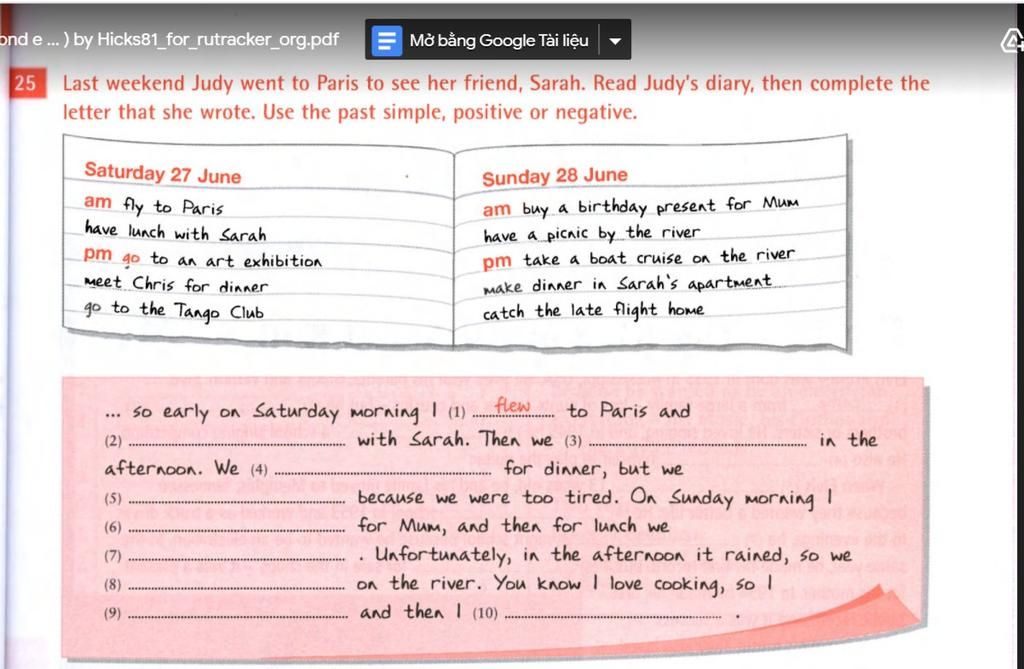 ond e ... ) by Hicks81_for_rutracker_org.pdf
Mở bằng Google Tài liệu
25 Last weekend Judy went to Paris to see her friend, Sarah. Read Judy's diary, then complete the
letter that she wrote. Use the past simple, positive or negative.
Saturday 27 June
am fly to Paris
have lunch with Sarah
pm go to an art exhibition
meet Chris for dinner
go to the Tango Club
Sunday 28 June
am buy a birthday present for Mum
have a picnic by the river
pm take a boat cruise on the river
make dinner in Sarah's apartment
catch the late flight home
... so early on Saturday morning I (1) ....flew.... to Paris and
(2) ........................ with Sarah. Then we (3) ........................ in the
afternoon. We (4) ........................ for dinner, but we
(5) ........................ because we were too tired. On Sunday morning I
(6) ........................ for Mum, and then for lunch we
(7) ........................ . Unfortunately, in the afternoon it rained, so we
(8) ........................ on the river. You know I love cooking, so I
(9) ........................ and then I (10) ........................ .